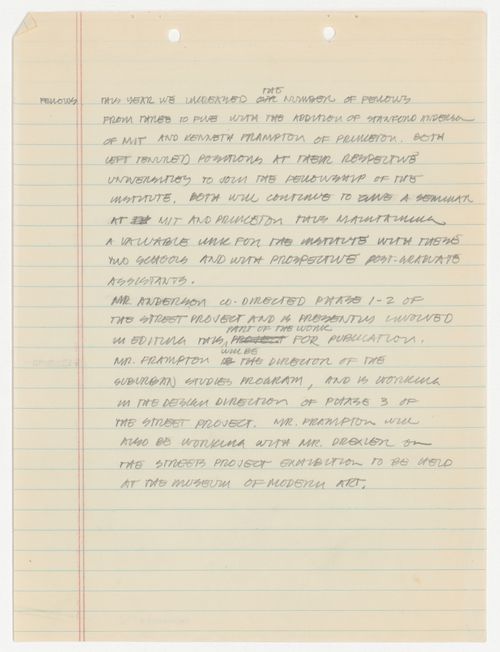 THE
FELLOWS THIS YEAR WE INCREASED OUR NUMBER OF FELLOWS
FROM THREE TO FIVE WITH THE ADDITION OF STANFORD ANDERSON
OF MIT AND KENNETH FRAMPTON OF PRINCETON. BOTH
LEFT TENURED POSITIONS AT THEIR RESPECTIVE
UNIVERSITIES TO JOIN THE FELLOWSHIP OF THE
INSTITUTE. BOTH WILL CONTINUE TO GIVE A SEMINAR
AT MIT AND PRINCETON THUS MAINTAINING
A VALUABLE LINK FOR THE INSTITUTE WITH THESE
TWO SCHOOLS AND WITH PROSPECTIVE POST-GRADUATE
ASSISTANTS.
MR. ANDERSON CO-DIRECTED PHASE 1-2 OF
THE STREET PROJECT AND IS PRESENTLY INVOLVED
PART OF THE WORK
IN EDITING THIS PROJECT FOR PUBLICATION.
WILL BE
MR. FRAMPTON IS THE DIRECTOR OF THE
SUBURBAN STUDIES PROGRAM, AND IS WORKING
IN THE DESIGN DIRECTION OF PHASE 3 OF
THE STREET PROJECT. MR. FRAMPTON WILL
ALSO BE WORKING WITH MR. DREXLER ON
THE STREETS PROJECT EXHIBITION TO BE HELD
AT THE MUSEUM OF MODERN ART.